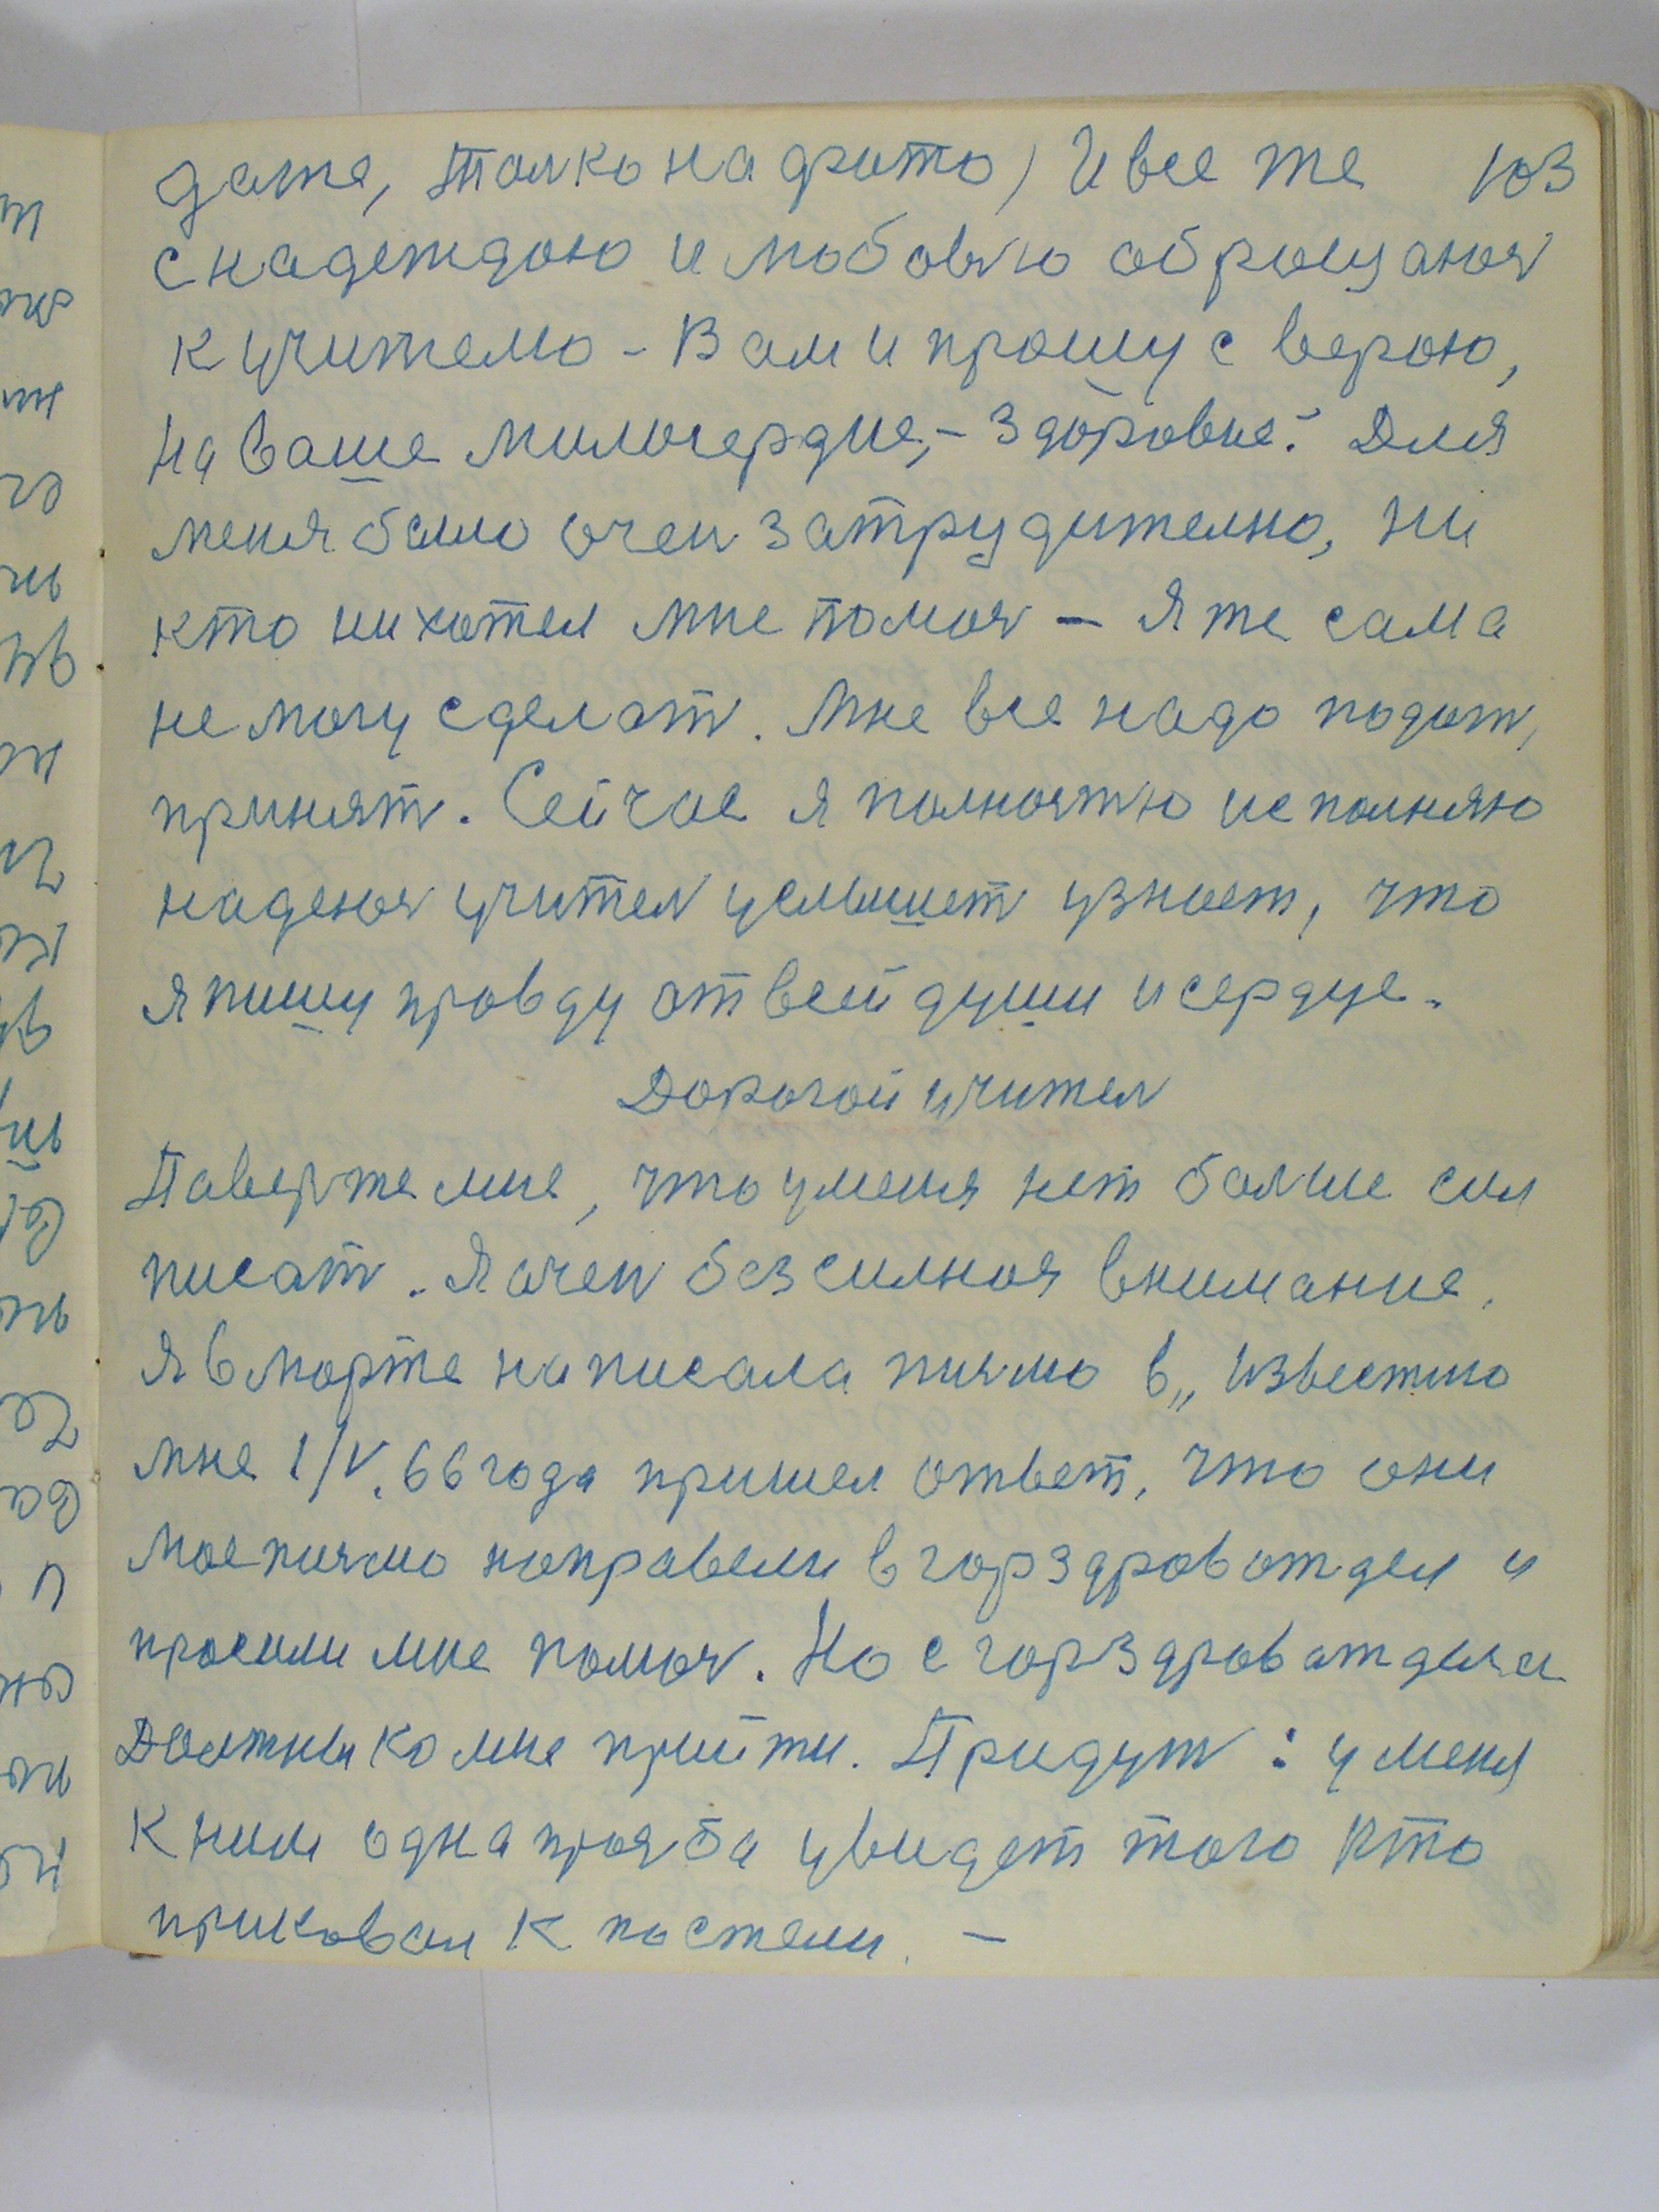 даже, толко на фото) И все же 103
с надеждою и любовью обращаюсь
к учителю - Вам и прошу с верою,
на ваше милосердие, - здоровие. Для
меня было очен затрудително, ни
кто ни хотел мне помоч - Я же сама
не могу сделат. Мне все надо подат,
принят. Сейчас я полностю исполняю
надеюсь учител услышет узнает, что
я пишу правду от всей души и сердце.
Дорогой учител
Поверьте мне, что у меня нет болше сил
писат. Я очен безсилная внимание.
Я в марте написала писмо в „Известию
мне 1/V. 66 года пришел ответ, что они
мое писмо направели в горздравотдел и
просили мне помоч. Но с горздравотдела
Должны ко мне прийти. Придут: у меня
К ним одна прозба увидет того кто
прикован к постели. -